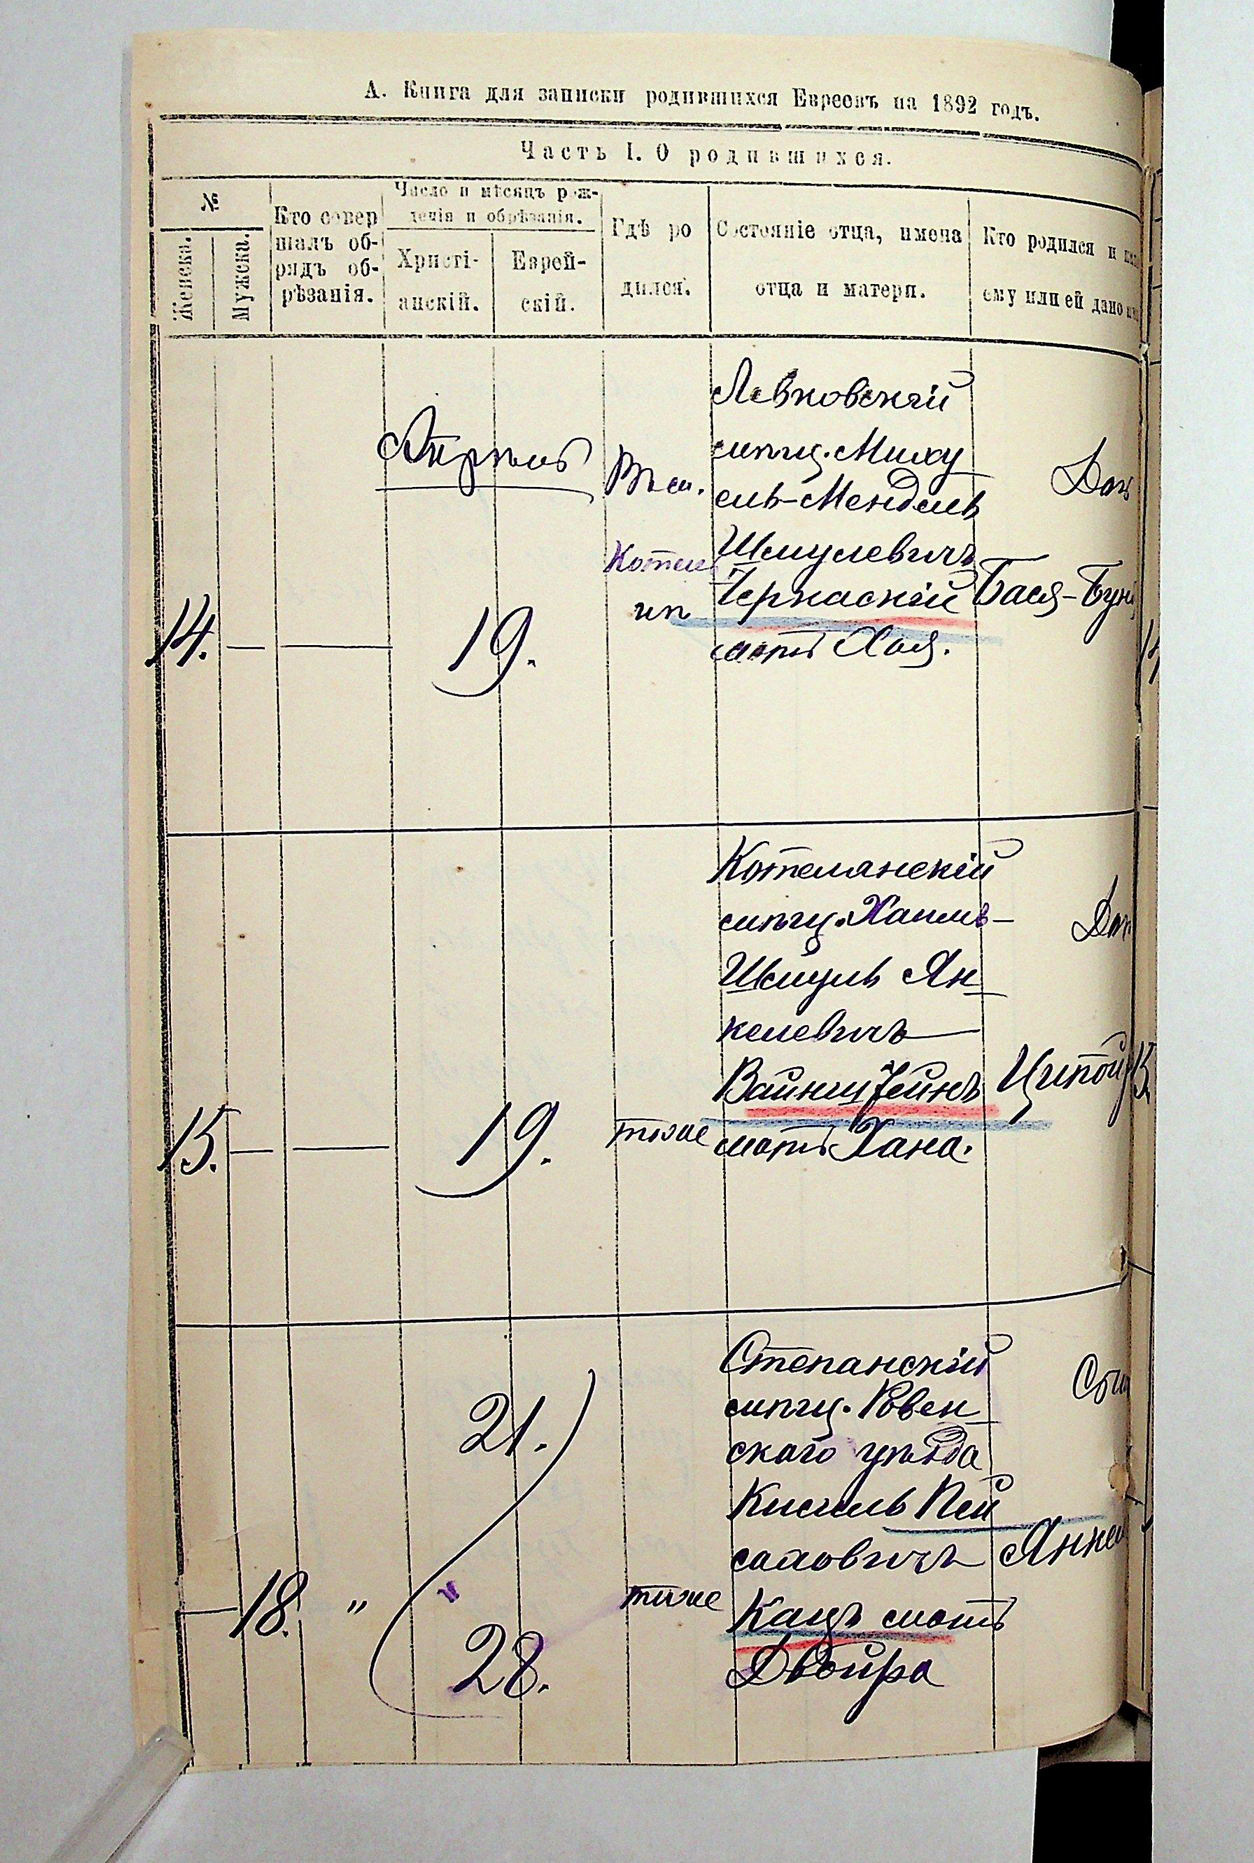 А. Книга для записки родившихся Евреевъ на 1892 годъ.
Часть I. О родившихся.
№
Женска.
Мужска.
Кто совер
шалъ об-
рядъ об-
рѣзанія.
Число и мѣсяцъ рож-
денія и обрѣзанія.
Христі-
анскій.
Еврей-
скій.
Гдѣ ро
дился.
Состояніе отца, имена
отца и матери.
Кто родился и
ему или ей дано
Апрѣль
14.
19.
Въ м.
Котел
нѣ
Левковскій
мѣщ. Миху
ель-Мендель
Шмулевичъ
Черкаскій
мать Хая.
Доч
Бася-Бун
14
15.
19.
тоже
Котелянскій
мѣщ. Хаимъ-
Шмуль Ян
келевичъ
Вайнштейнъ
мать Хана.
Доч
Ципой
15.
18.
"
21.
и
28.
тоже
Степанскій
мѣщ. Ровен
скаго уѣзда
Кисиль Пей
саховичъ
Кацъ мать
Двойра
Сын
Янке